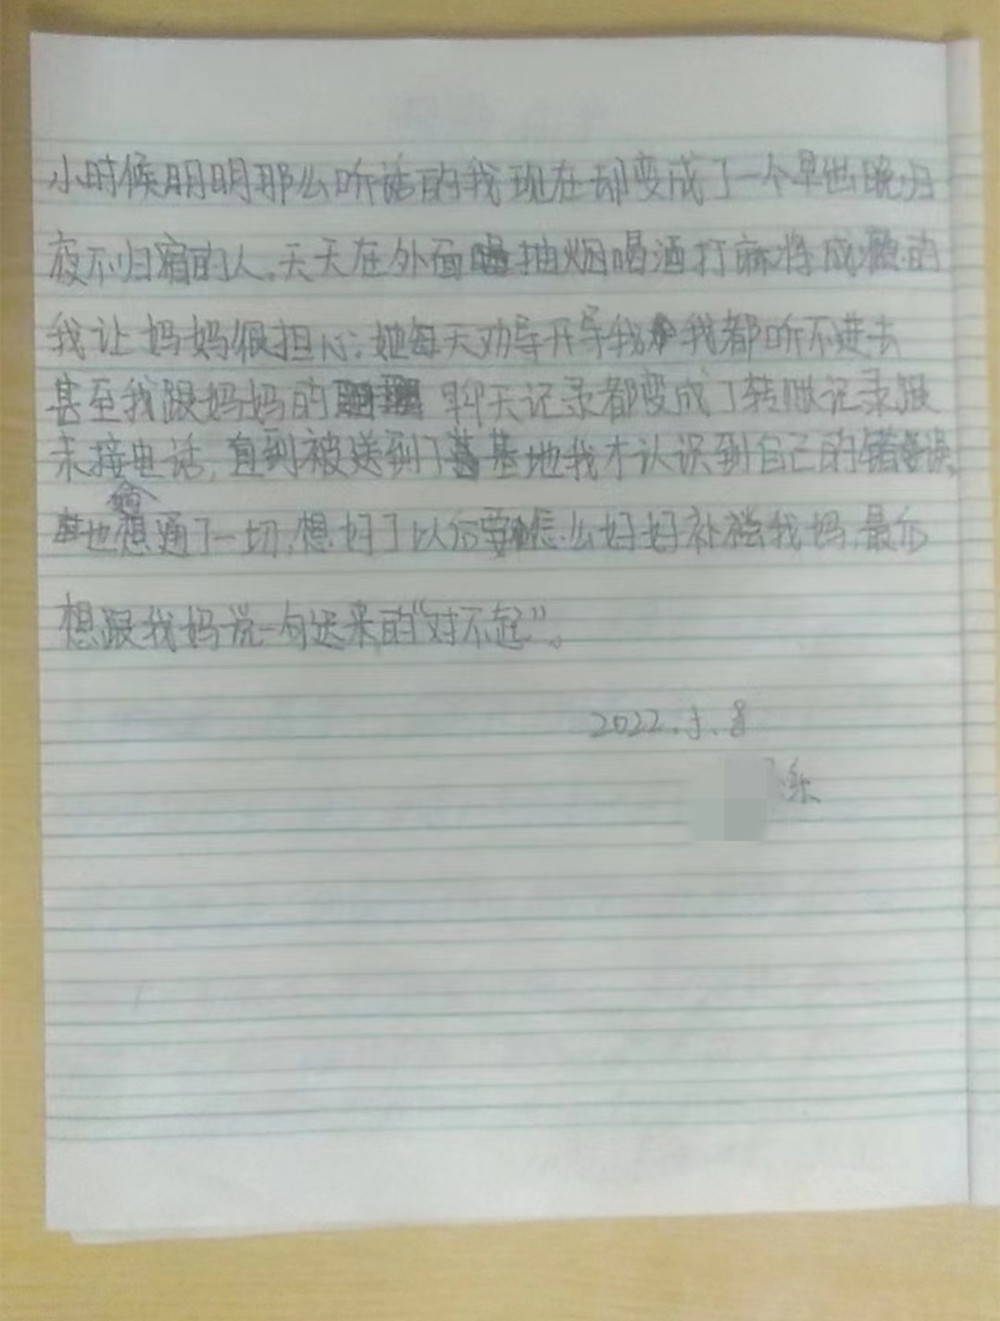 小时候明明那么听话的我现在却变成了一个早出晚归
夜不归宿的人。天天在外面抽烟喝酒打麻将成瘾的
我让妈妈很担心,她每天劝导开导我我都听不进去
甚至我跟妈妈的聊天记录都变成了转账记录跟
未接电话,直到被送到了基地我才认识到自己的错误,
也想通了一切,想好了以后要怎么好好补偿我妈,最后
想跟我妈说一句迟来的“对不起”。
2022.5.8